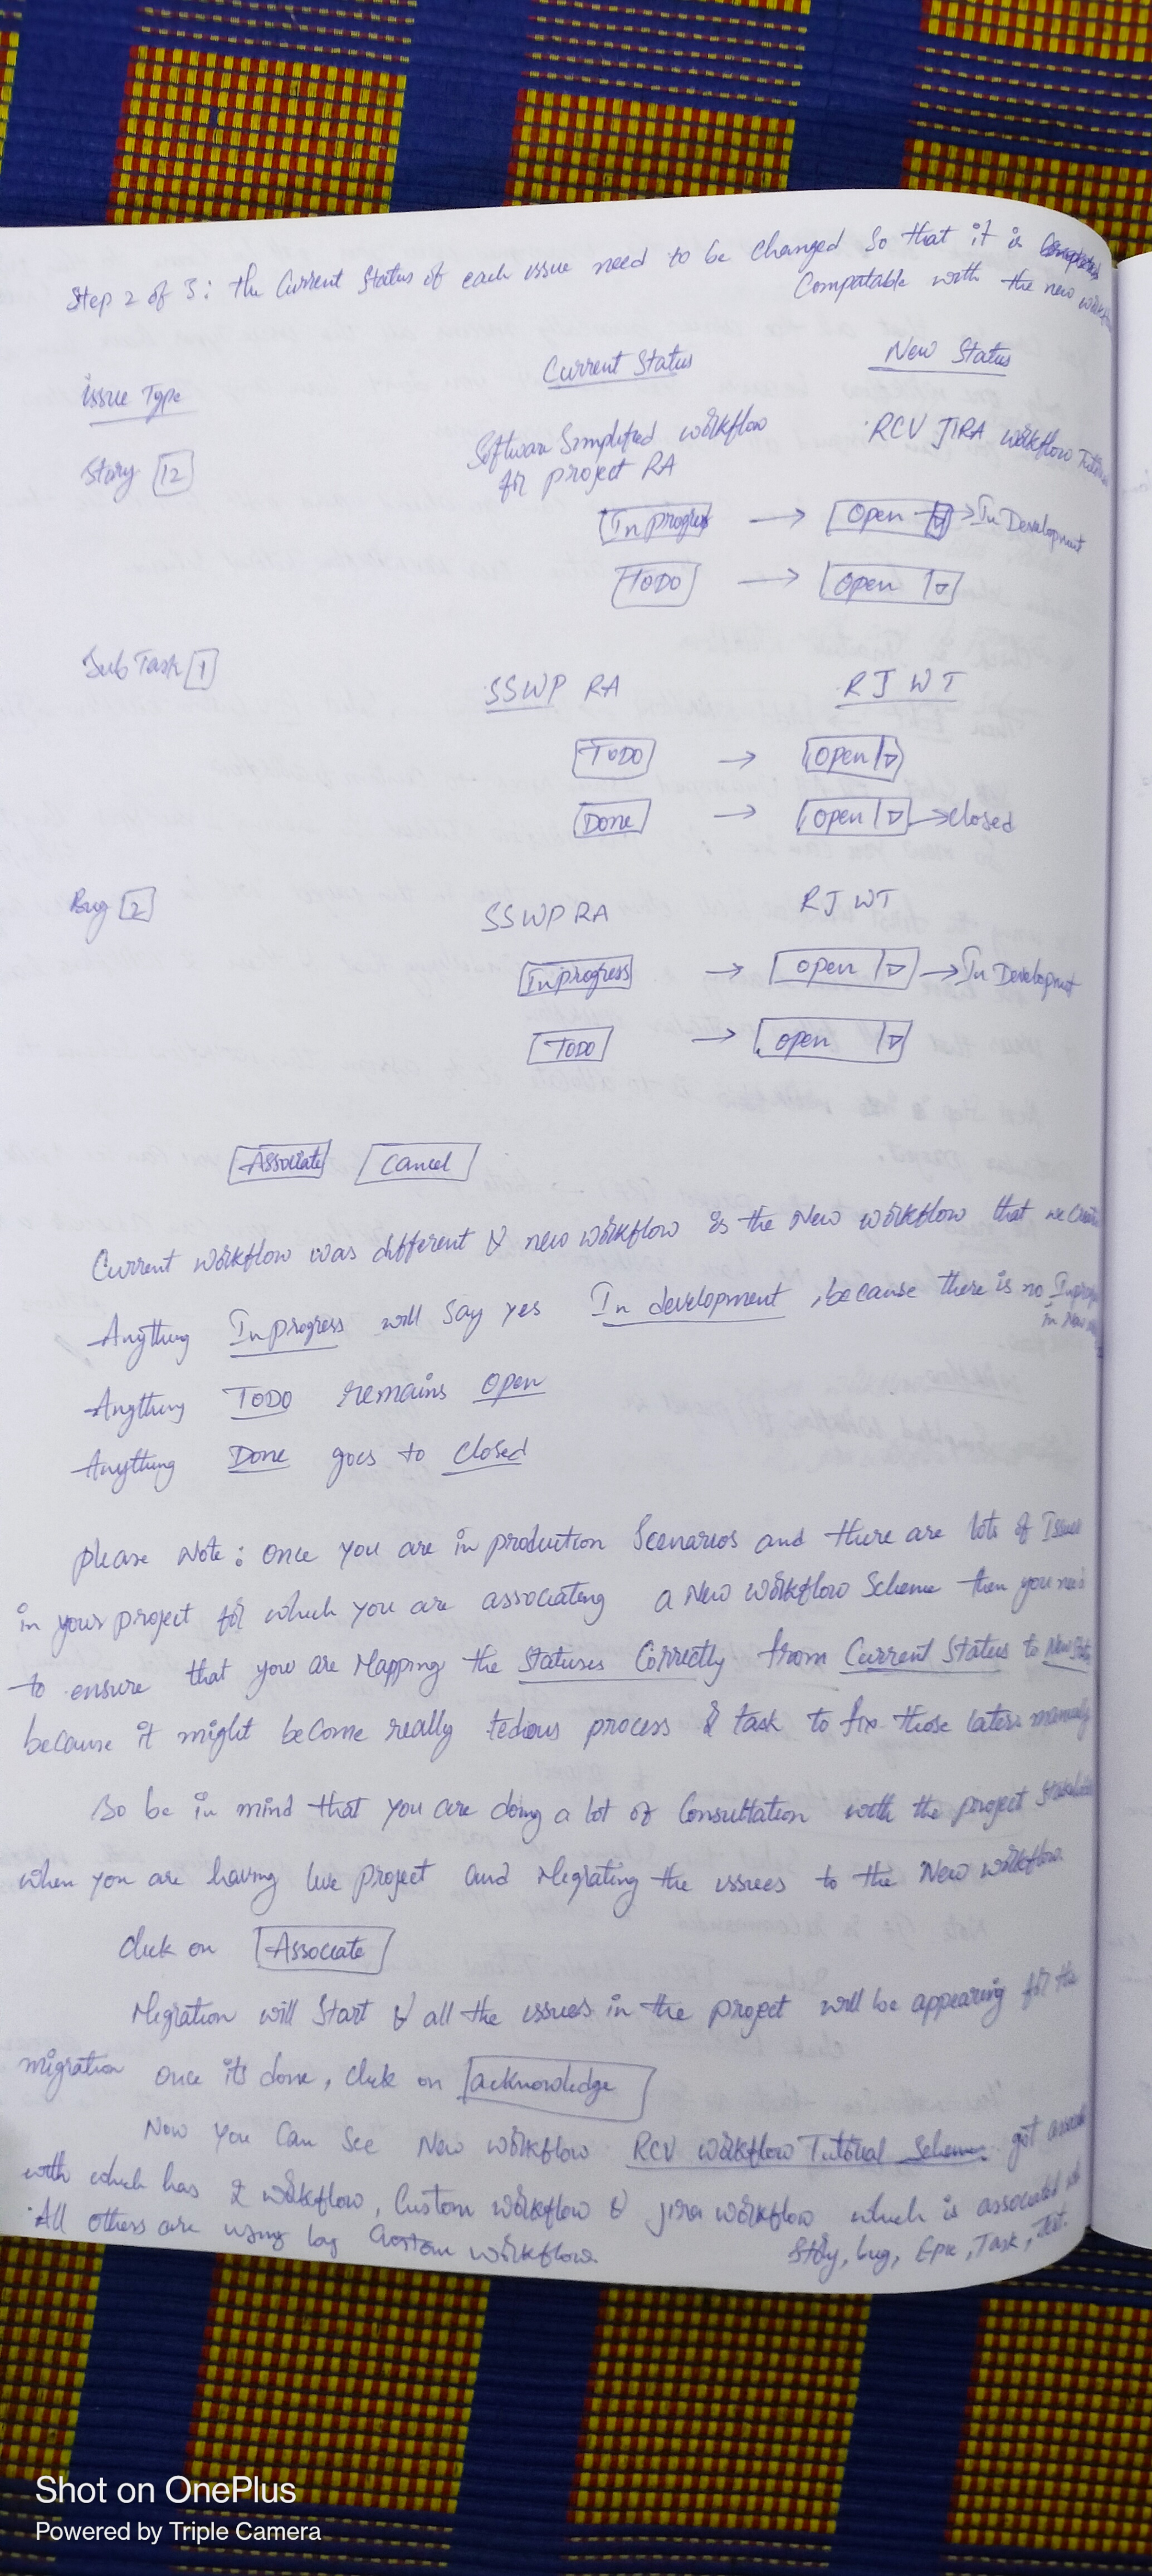 Step 2 of 3: the Current Status of each issue need to be changed So that it is
Compatable with the new
Issue Type Current Status New Status
Story 12 Software Simplified workflow for project RA RCV JIRA workflow
In progress → Open → In Development
TODO → Open
Sub Task 1 SSWP RA RJWT
TODO → Open
Done → Open → closed
Bug 2 SSWP RA RJ WT
In progress → open → In Development
TODO → open
Associate Cancel
Current workflow was different & new workflow is the New workflow that we
Anything In progress will say yes In development, because there is no
in New
Anything TODO remains open
Anything Done goes to closed
please Note: once you are in production Scenarios and there are lots of Issues
in your project for which you are associating a New workflow Scheme then you
to ensure that you are Mapping the Statuses Correctly from Current Status to New
because it might become really tedious process & task to fix those later manually
so be in mind that you are doing a lot of Consultation with the project
when you are having live project and Migrating the issues to the New workflow.
click on Associate
Migration will Start & all the issues in the project will be appearing for the
migration once it's done, click on acknowledge
Now you Can See New workflow RCV workflow Tutorial Scheme got
with which has 2 workflow, Custom workflow & Jira workflow which is associated
Story, bug, Epic, Task,
All others are using custom workflow.
Shot on OnePlus
Powered by Triple Camera